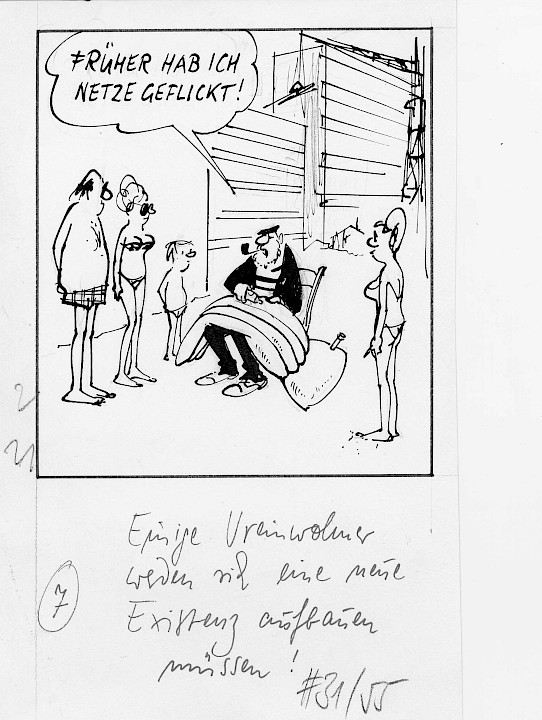 FRÜHER HAB ICH
NETZE GEFLICKT!
2
21
Einige Ureinwohner
werden sich eine neue
Existenz aufbauen
müssen!
7
#31/55